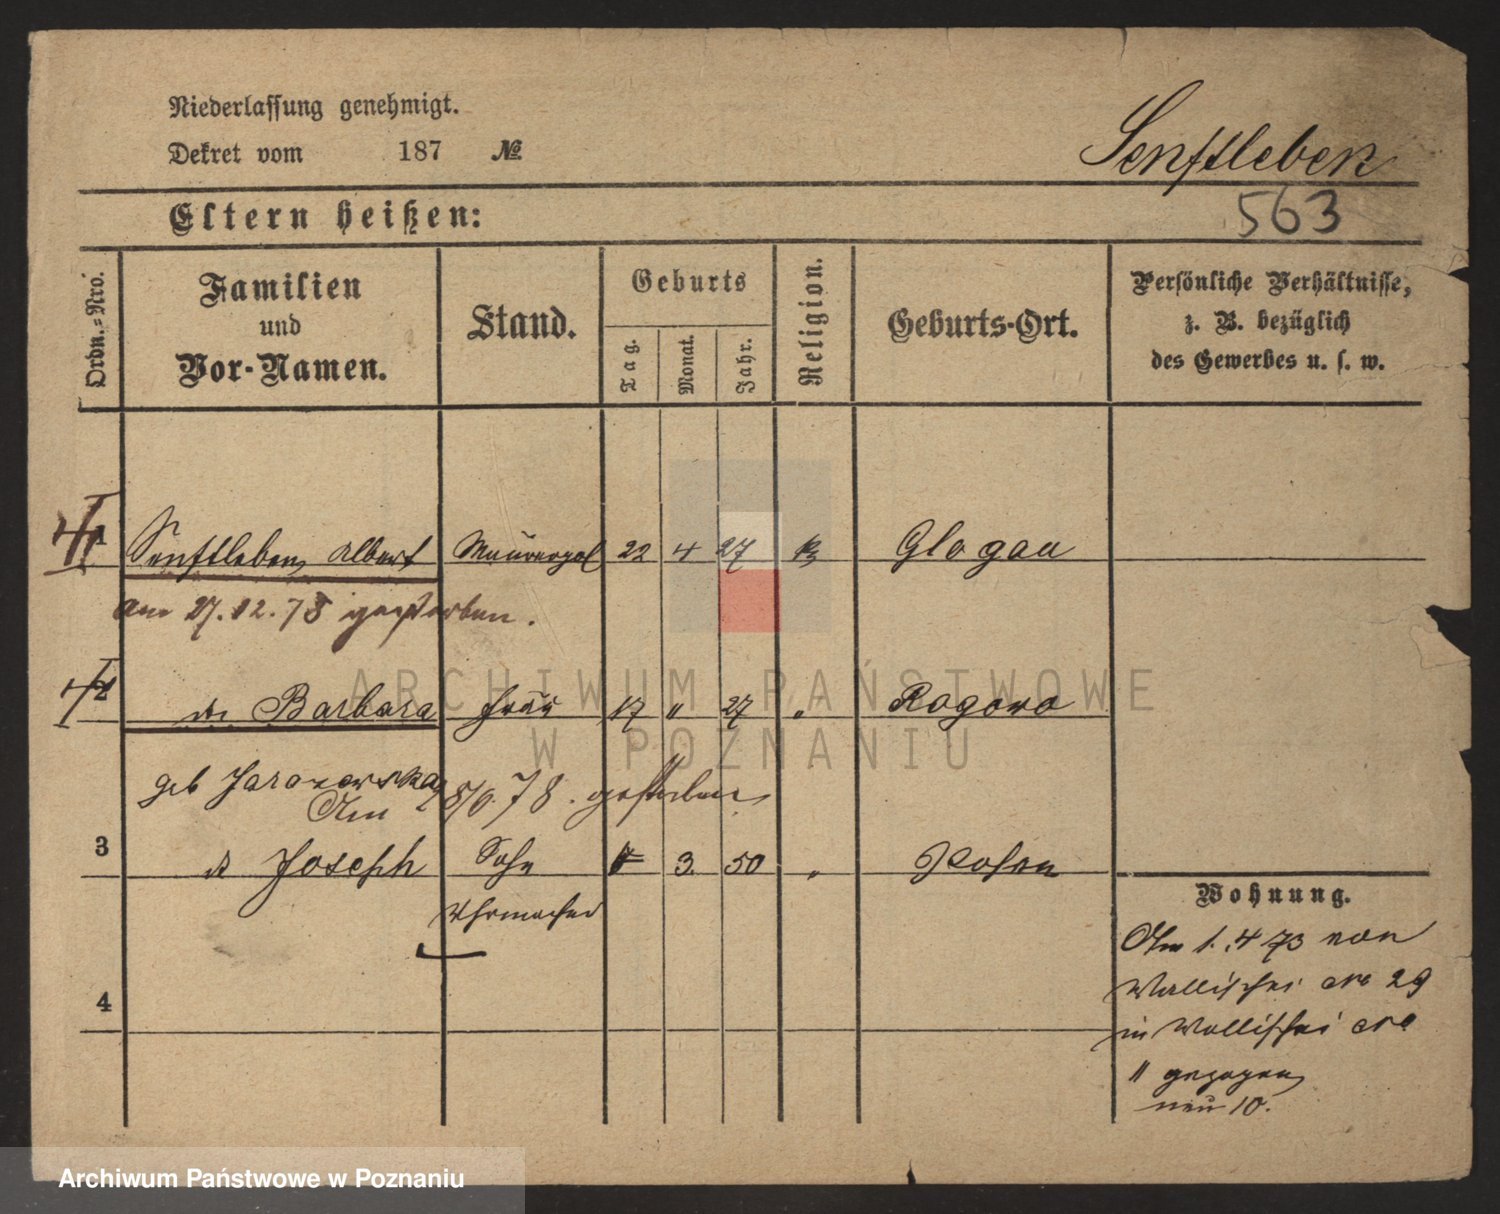 Niederlassung genehmigt.
Dekret vom 187 №
Senftleben
Eltern heißen:
563
Ordn.=Nro.
Familien
und
Vor-Namen.
Stand.
Geburts
Tag.
Monat.
Jahr.
Religion.
Geburts-Ort.
Persönliche Verhältnisse,
z. B. bezüglich
des Gewerbes u. s. w.
1 Senftleben Albert Maurergsl 22 4 27 k Glogau
Am 27.12.78 gestorben.
2 Barbara Frau 17 " 27 " Rogowo
geb Jarazewska
Am 8/6.78. gestorben
3 Joseph Sohn 7 3. 50 " Posen
Uhrmacher
4
Wohnung.
Am 1.4 73 von
Wallischei No 29
in Wallischei No
11 gezogen
neu 10.
ARCHIWUM PAŃSTWOWE
W POZNANIU
Archiwum Państwowe w Poznaniu